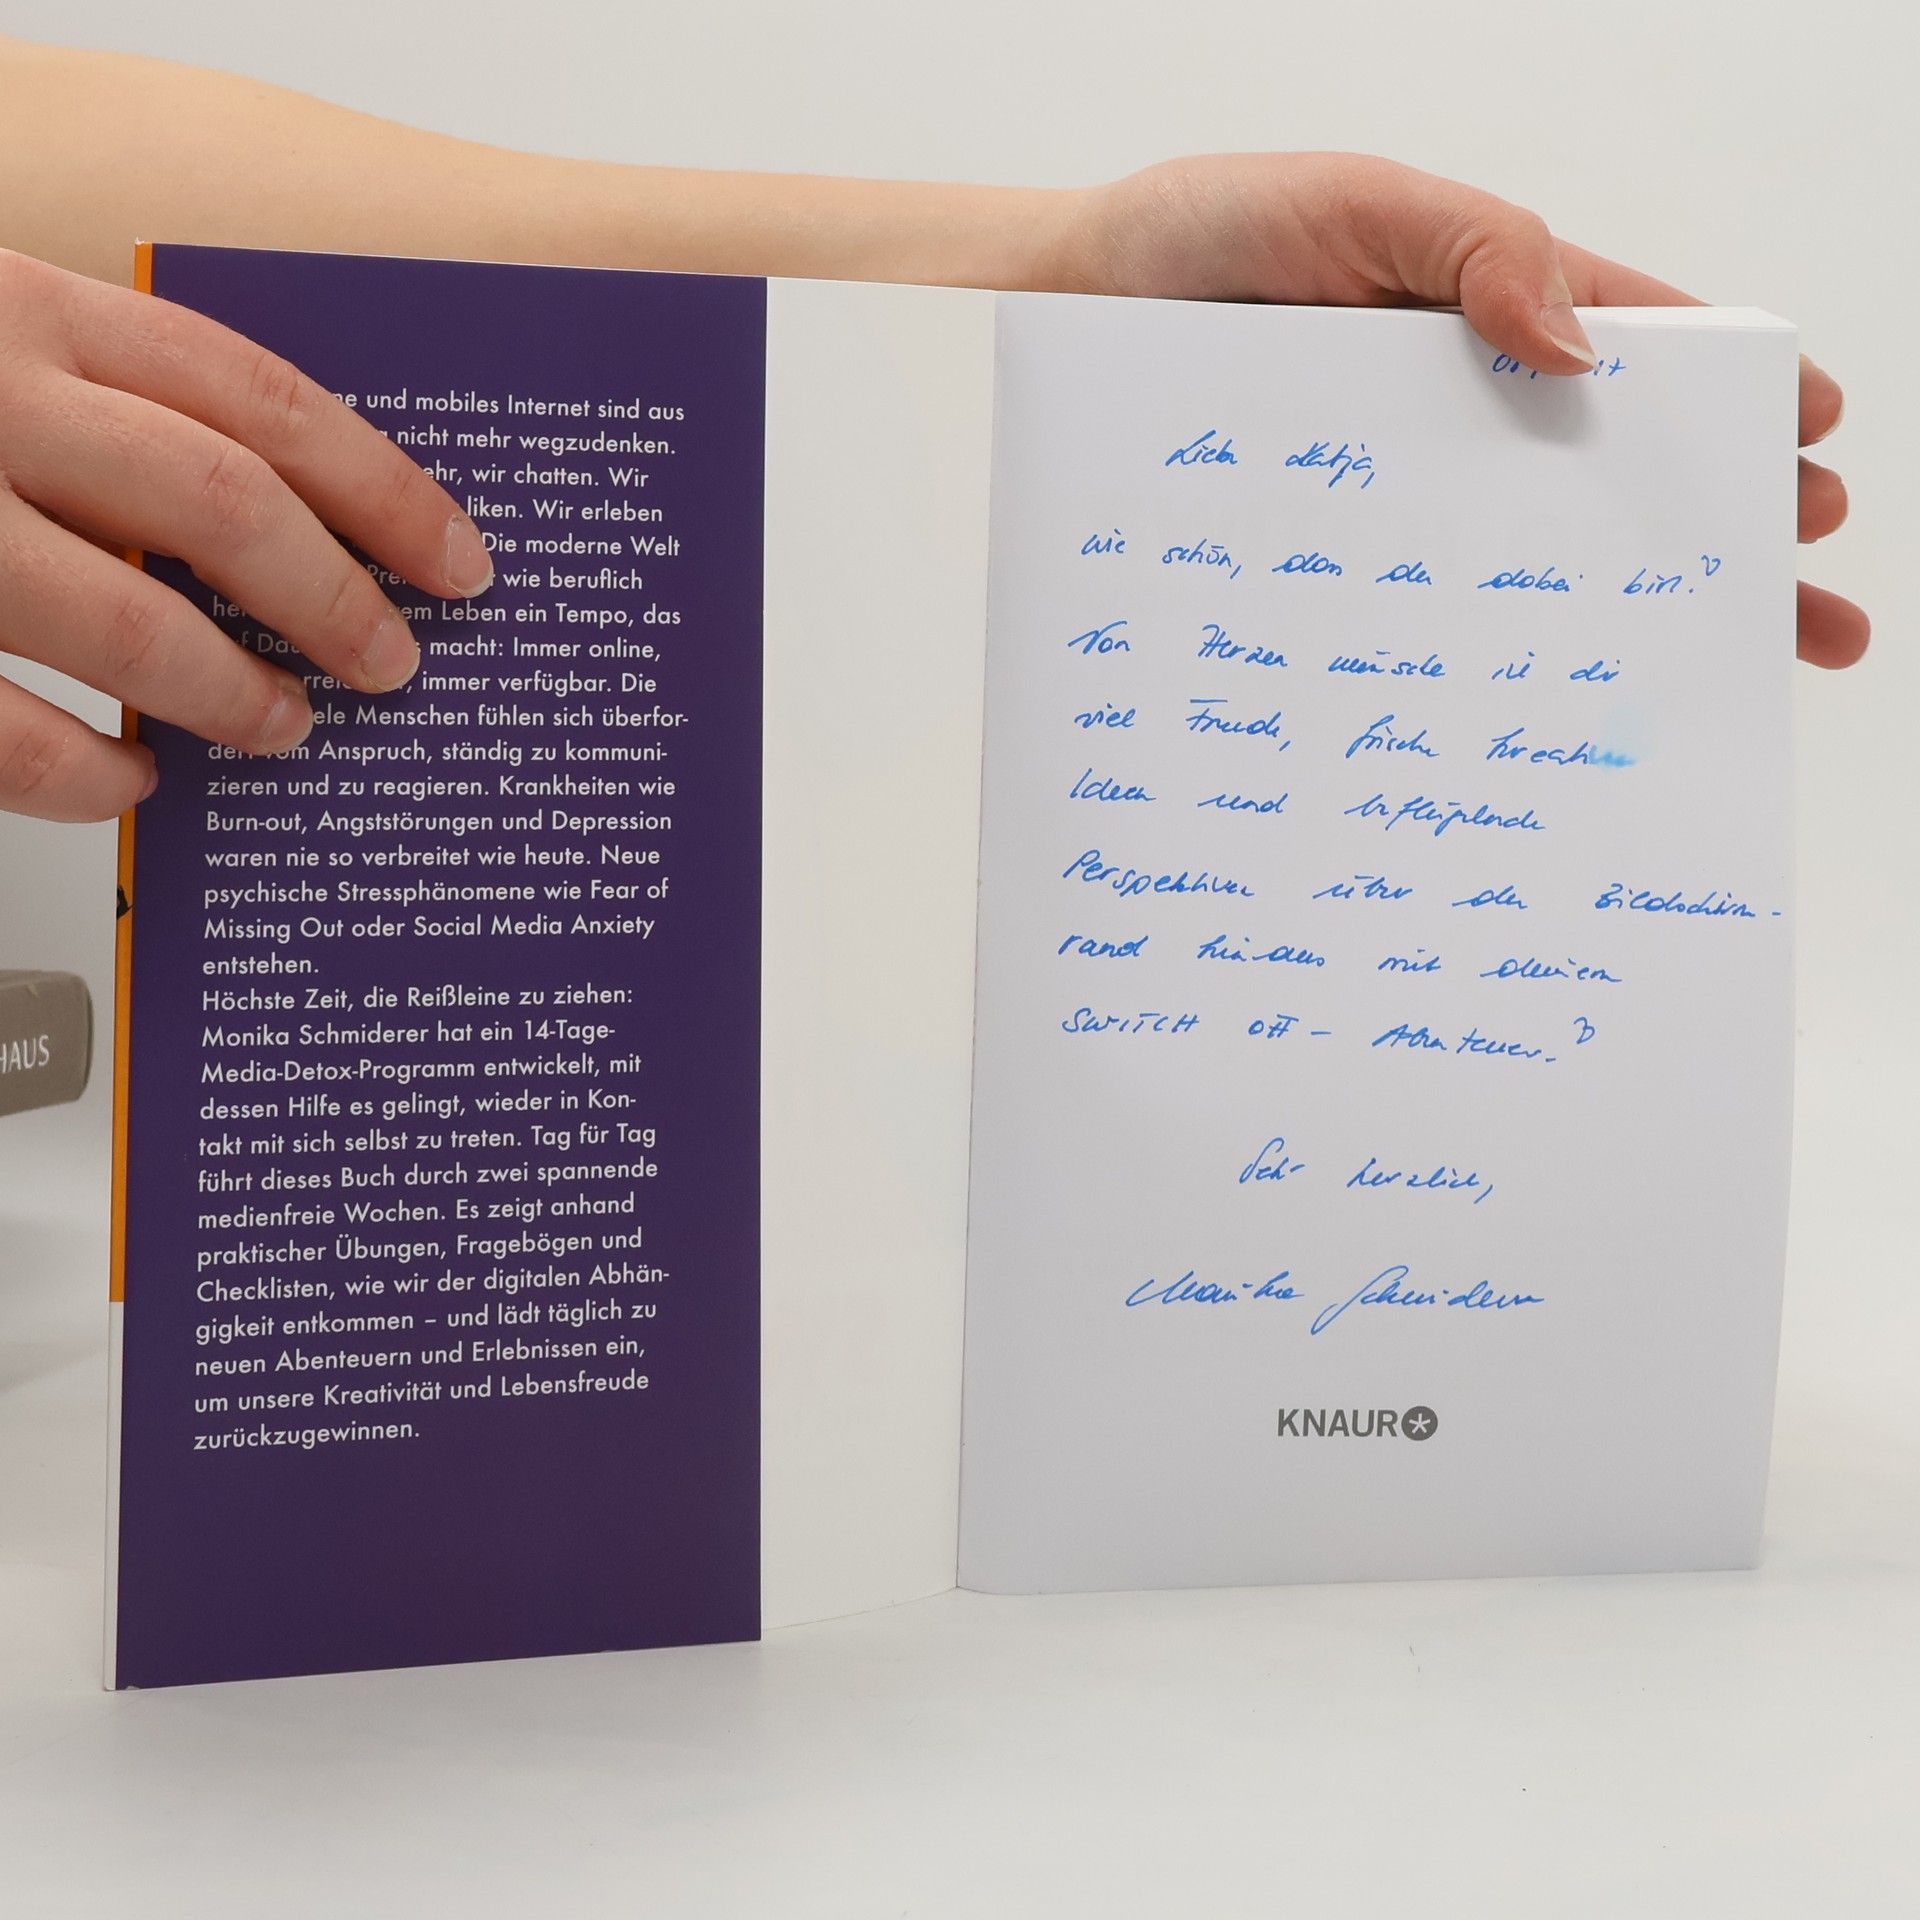 und mobiles Internet sind aus
nicht mehr wegzudenken.
wir chatten. Wir
liken. Wir erleben
Die moderne Welt
wie beruflich
Leben ein Tempo, das
macht: Immer online,
immer verfügbar. Die
Menschen fühlen sich überfor-
Anspruch, ständig zu kommuni-
zieren und zu reagieren. Krankheiten wie
Burn-out, Angststörungen und Depression
waren nie so verbreitet wie heute. Neue
psychische Stressphänomene wie Fear of
Missing Out oder Social Media Anxiety
entstehen.
Höchste Zeit, die Reißleine zu ziehen:
Monika Schmiderer hat ein 14-Tage-
Media-Detox-Programm entwickelt, mit
dessen Hilfe es gelingt, wieder in Kon-
takt mit sich selbst zu treten. Tag für Tag
führt dieses Buch durch zwei spannende
medienfreie Wochen. Es zeigt anhand
praktischer Übungen, Fragebögen und
Checklisten, wie wir der digitalen Abhän-
gigkeit entkommen – und lädt täglich zu
neuen Abenteuern und Erlebnissen ein,
um unsere Kreativität und Lebensfreude
zurückzugewinnen.
Liebe Katja,
wie schön, dass du dabei bist!
Von Herzen wünsche ich dir
viel Freude, frische kreative
Ideen und beflügelnde
Perspektiven über den Bildschirm-
rand hinaus mit deinem
SWITCH OFF - Abenteuer.
Sehr herzlich,
Monika Schmiderer
KNAUR
HAUS